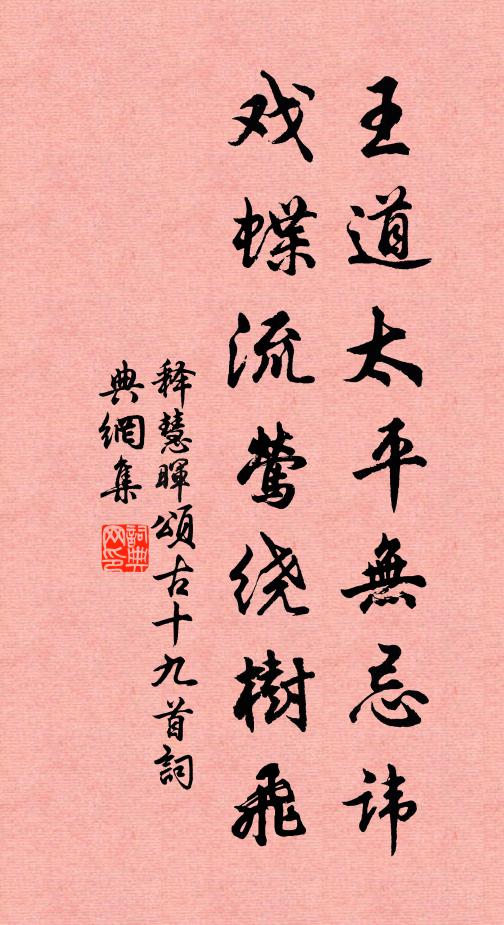 王道太平無忌讳
戏蝶流莺绕樹飛
释慧暉頌古十九首詞
典網集
詞典网印